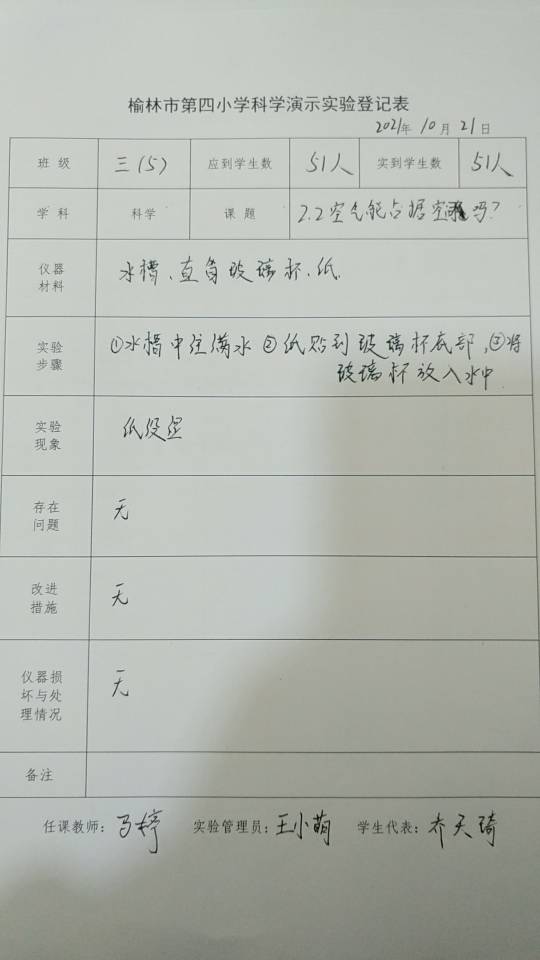 榆林市第四小学科学演示实验登记表
2021年 10 月 21 日
班 级 三(5) 应到学生数 51人 实到学生数 51人
学 科 科学 课 题 2.2空气能占据空间吗?
仪器
材料
水槽、直角玻璃杯、纸.
实验
步骤
①水槽中注满水 ②纸贴到玻璃杯底部,③将
玻璃杯放入水中
实验
现象
纸没湿
存在
问题
无
改进
措施
无
仪器损
坏与处
理情况
无
备注
任课教师: 马婷 实验管理员: 王小萌 学生代表: 乔天琦